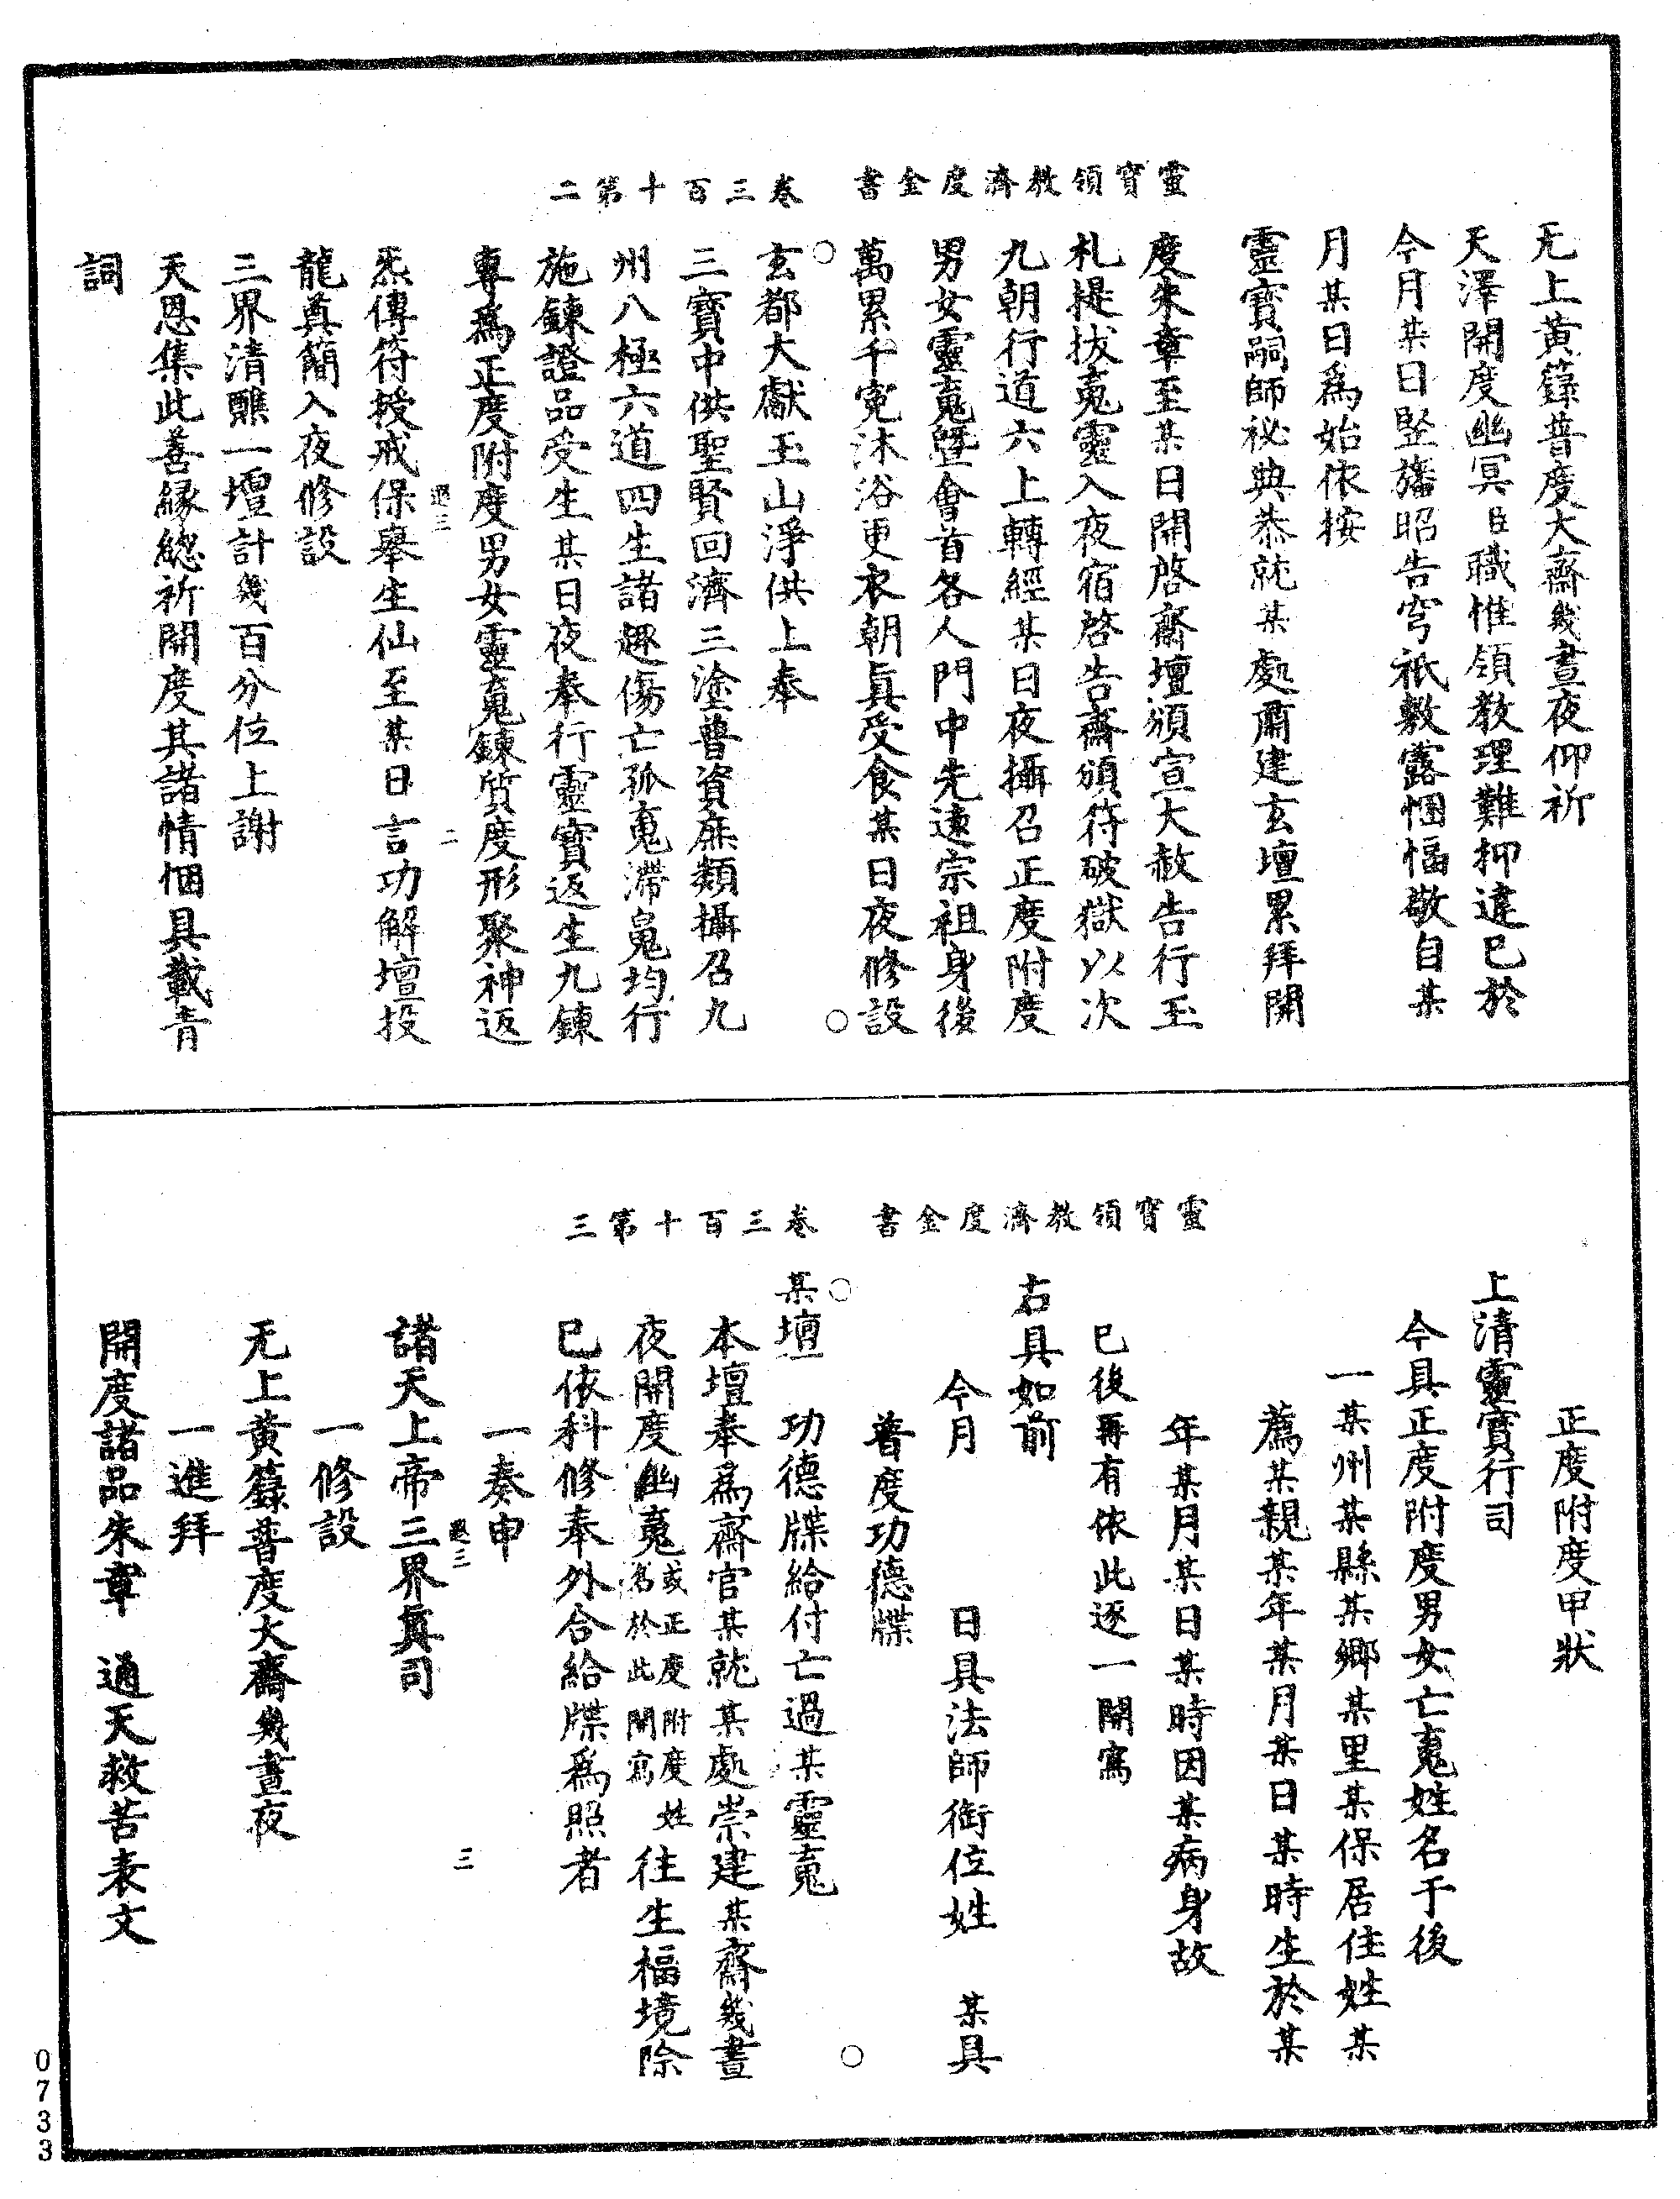 靈寶領教濟度金書　卷三百十第二
无上黃籙普度大齋幾晝夜仰祈
天澤開度幽冥臣職惟領教理難抑違已於
今月某日竪旛昭告穹祇敷露悃愊敬自某
月某日爲始依按
靈寶嗣師祕典恭就某處肅建玄壇累拜開
度朱章至某日開啓齋壇頒宣大赦告行玉
札提拔䰟靈入夜宿啓告齋頒符破獄以次
九朝行道六上轉經某日夜攝召正度附度
男女靈䰟曁會首各人門中先遠宗祖身後
萬累千寃沐浴更衣朝眞受食某日夜修設
玄都大獻玉山淨供上奉
三寶中供聖賢回濟三塗普資庶類攝召九
州八極六道四生諸趣傷亡孤䰟滯魄均行
施鍊證品受生某日夜奉行靈寶返生九鍊
專爲正度附度男女靈䰟鍊質度形聚神返
炁傳符授戒保舉生仙至某日言功解壇投
龍奠簡入夜修設
三界清醮一壇計幾百分位上謝
天恩集此善緣緫祈開度其諸情悃具載青
詞
靈寶領教濟度金書　卷三百十第三
正度附度甲狀
上清靈寶行司
今具正度附度男女亡䰟姓名于後
一某州某縣某鄉某里某保居住姓某
薦某親某年某月某日某時生於某
年某月某日某時因某病身故
已後再有依此逐一開寫
右具如前
今月　　日具法師銜位姓　某具
普度功德牒
某壇　功德牒給付亡過某靈䰟
本壇奉爲齋官某就某處崇建某齋幾晝
夜開度幽䰟或正度附度姓名於此開寫往生福境除
已依科修奉外合給牒爲照者
一奏申
諸天上帝三界眞司
一修設
无上黃籙普度大齋幾晝夜
一進拜
開度諸品朱章　通天救苦表文
0733